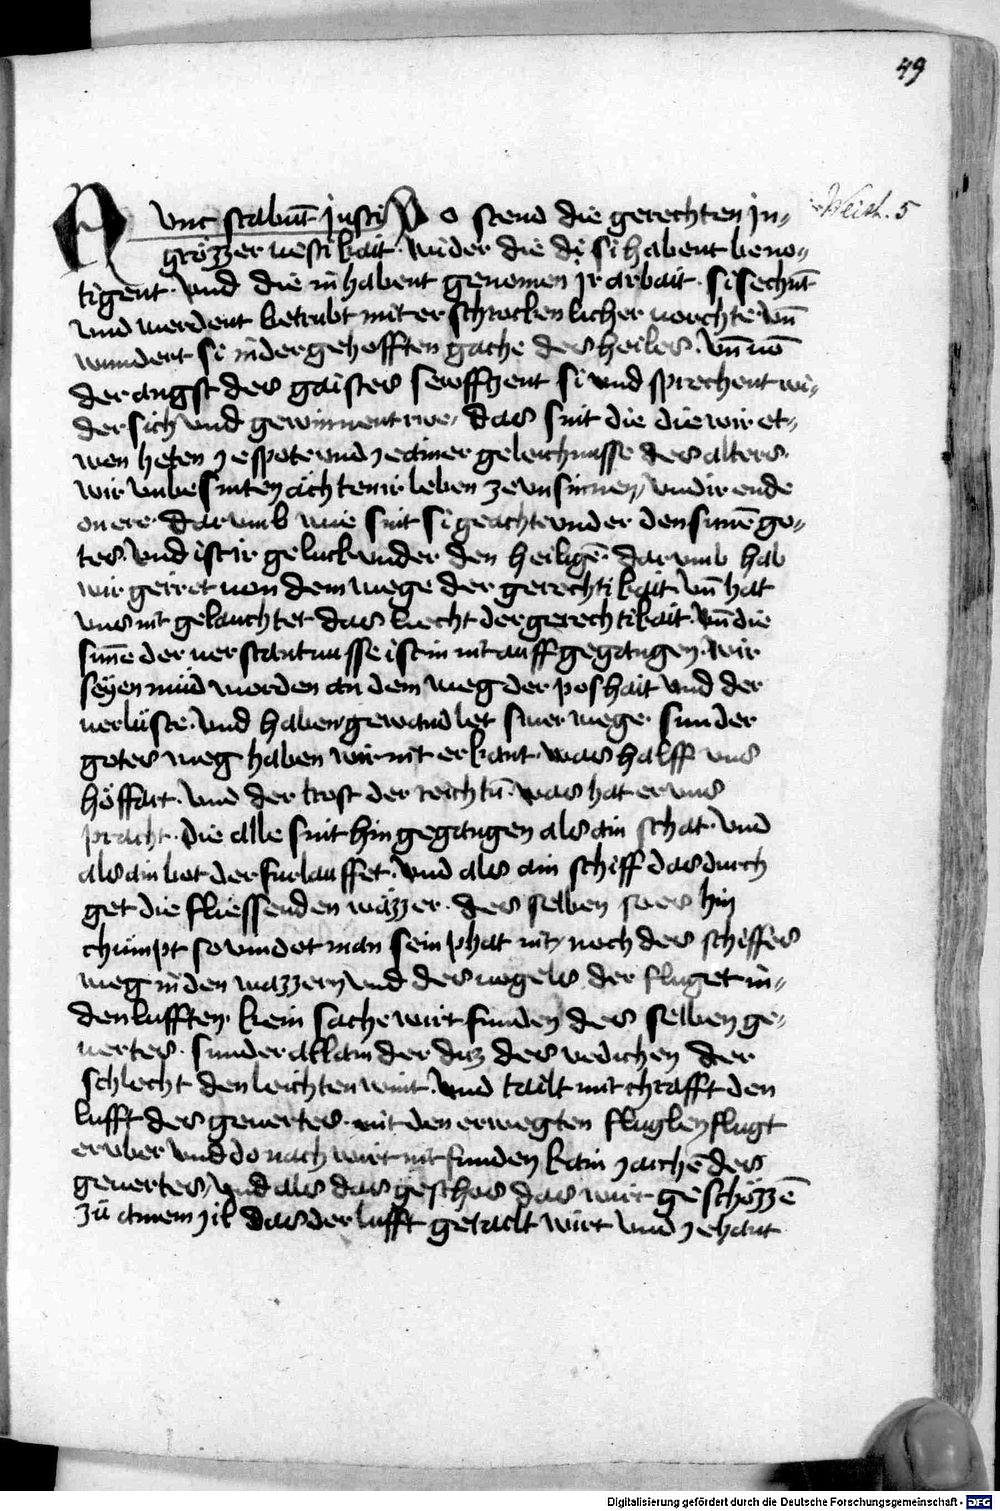 49
Weish. 5
Nunc stabūt justi Do stend die gerechten jn-
grözzer uestikait. wider die di si habent beno-
tigent. Vnd die in habent genomen jr arbait. si sechnt
vnd werdent betrubt mit erschrockenlicher vorchte vn̄
wundert si in der gehofften gache des heiles. vn̄ uō
der angst des gaistes sewffzent si vnd sprechent wi-
der sich vnd gewinnent rwe. das sint die die wir et-
wen heten ze spote vnd ze ainer geleichnusse des alters.
wir vnbesinten achten ir leben ze vnsinnen, vnd ir ende
on ere. darumb wie sint si geachte vnder den sunē go-
tes. vnd ist ir geluck vnder den heiligē. darumb hab
wir geirret uon dem wege der gerechtikait. vn̄ hat
vns nit gelauchtet das liecht der gerechtikait. vn̄ die
sunne der uerstantnusse ist in nit auffgegangen. wir
seyen müd worden an dem weg der poshait vnd der
uerlüste. vnd haben gewandlet swer wege. sunder
gotes weg haben wir nit erkant. was halff uns
höffart. vnd der trost der reichtū. was hat er uns
pracht. die alle sint hin gegangen als ain schat. vnd
als ain bot der furlauffet. vnd als ain schiff das durch
get die fliessenden wäzzer. des selben so es hin
chümpt so uindet man sein phat nit, noch des schiffes
weg in den wazzern, vnd des uogels der fluget in-
den lufften. kein sache wirt funden des selben ge-
uertes. sunder allain der duz des vedichen der
schlecht den leichten wint. vnd tailt mit chrafft den
lufft des geuertes. mit den erwegten fluglen flugt
er vber vnd do nach wirt nit funden kain zaichē des
geuertes, vnd als das geschos das wirt geschözzē
zü ainem zil das der lufft getailt wirt vnd zehant
Digitalisierung gefördert durch die Deutsche Forschungsgemeinschaft - DFG